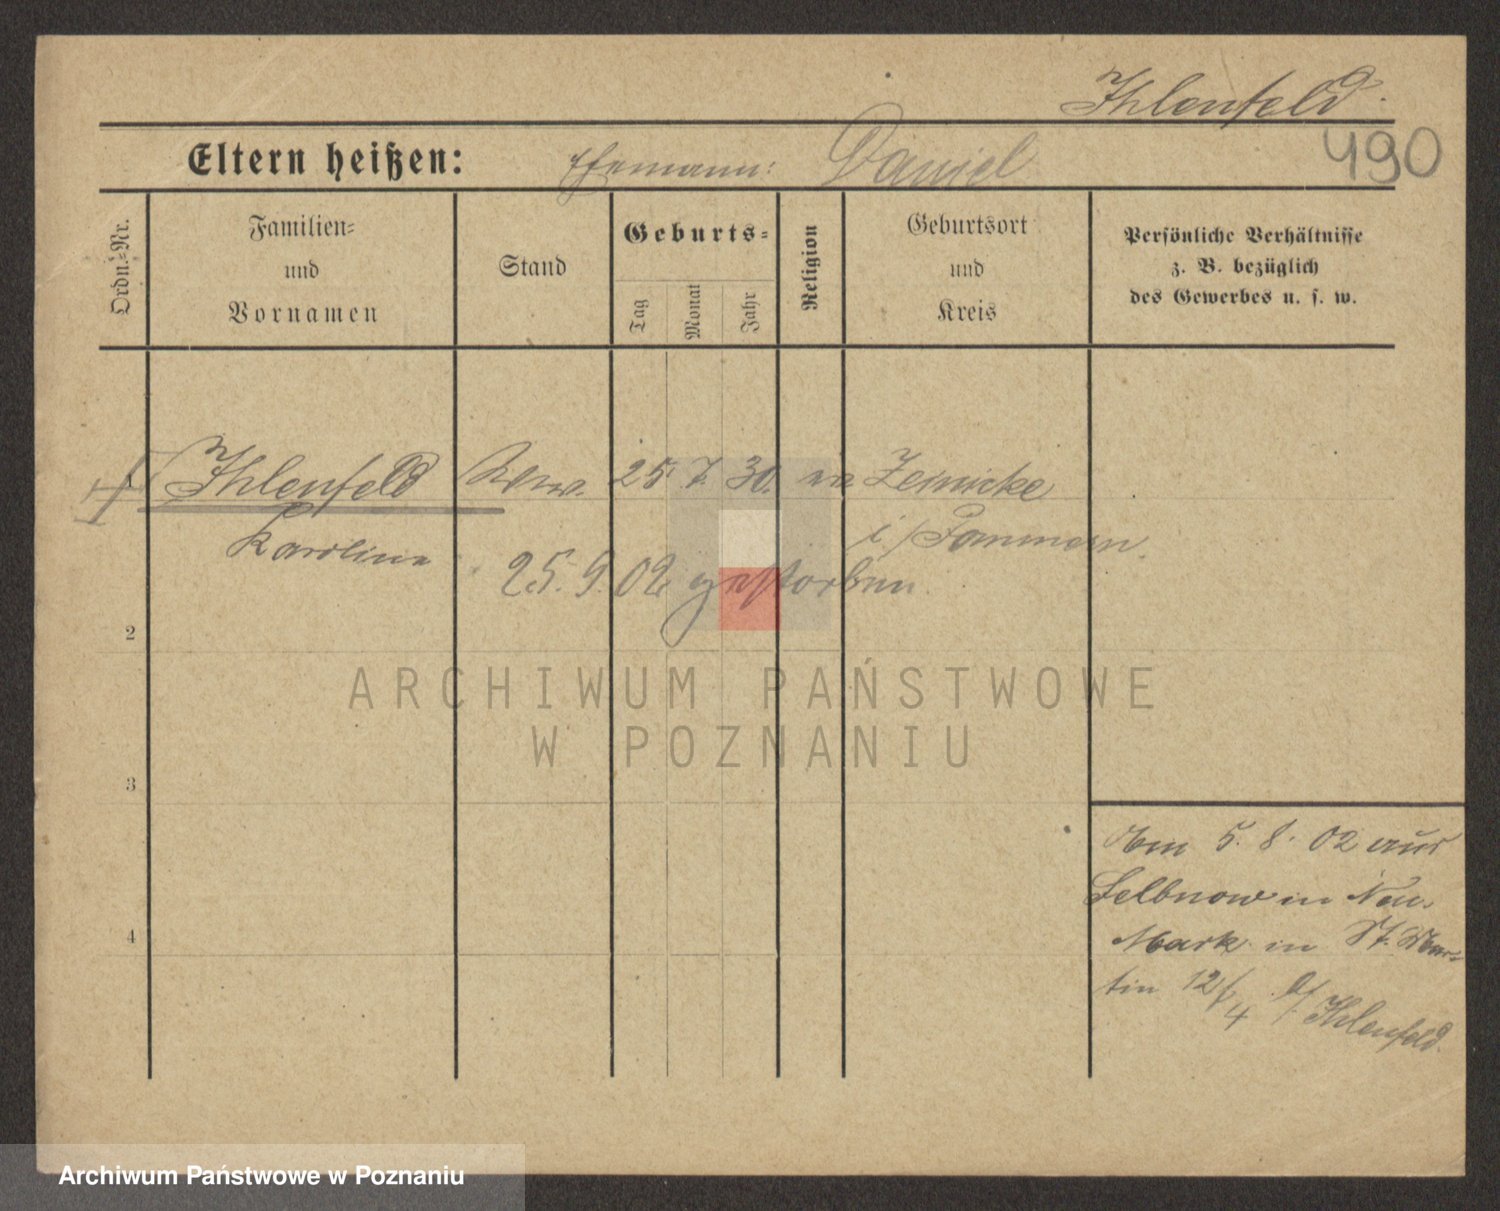 Ihlenfeld.
490
Eltern heißen: Ehemann: Daniel
Ordn.-Nr.
Familien-
und
Vornamen
Stand
Geburts-
Tag
Monat
Jahr
Religion
Geburtsort
und
Kreis
Persönliche Verhältnisse
z. B. bezüglich
des Gewerbes u. s. w.
1 Ihlenfeld Wwe. 25. 7. 30. ev Zeinicke
Karoline
i/Pommern.
25. 9. 02 gestorben.
2
3
4
ARCHIWUM PAŃSTWOWE
W POZNANIU
Am 5. 8. 02 aus
Selbnow in Neu-
Mark in St. Mar-
tin 12/4 b/Ihlenfeld.
Archiwum Państwowe w Poznaniu